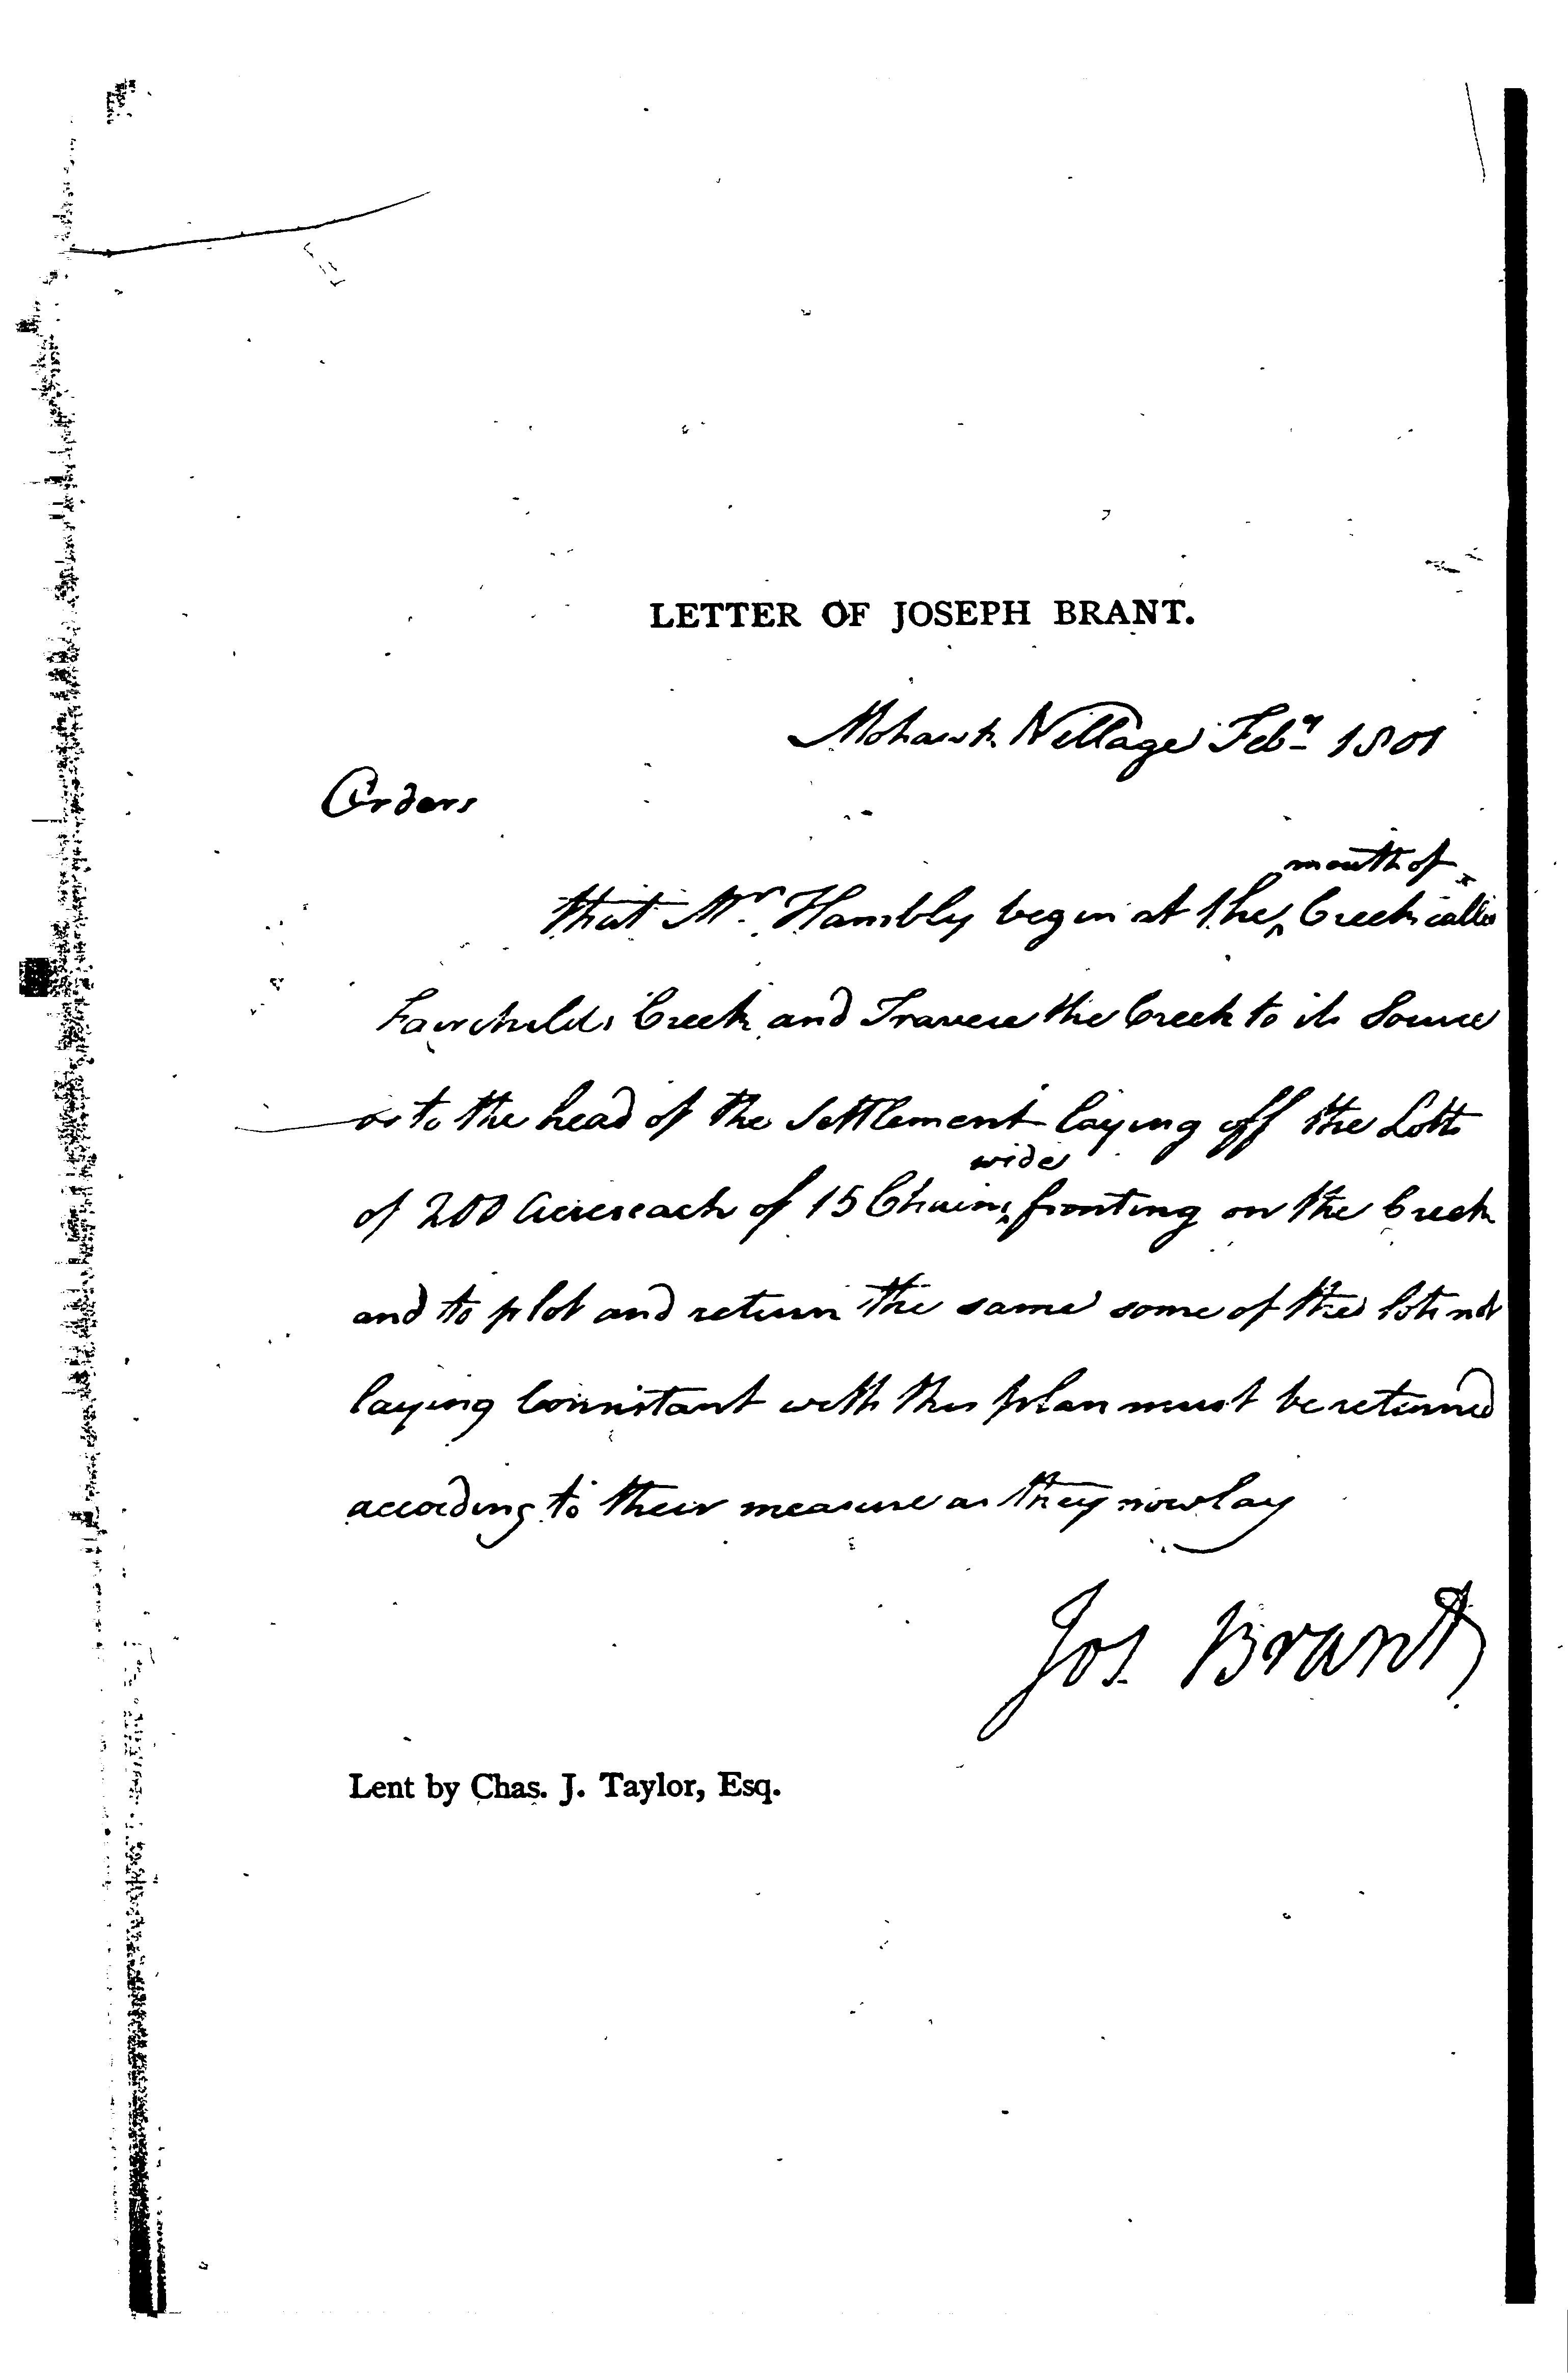 LETTER OF JOSEPH BRANT.
Mohawk Village Feby 1801
Orders
mouth of
that Mr. Hambly begin at the ^ Creek called
Fairchilds Creek and Traverse the Creek to its Source
or to the head of the Settlement laying off the Lotts
wide
of 200 Acres each of 15 Chains ^ fronting on the Creek
and to plot and return the same some of the lots not
laying Connistant with this plan must be returned
according to their measure as they now lay
Jos Brant
Lent by Chas. J. Taylor, Esq.